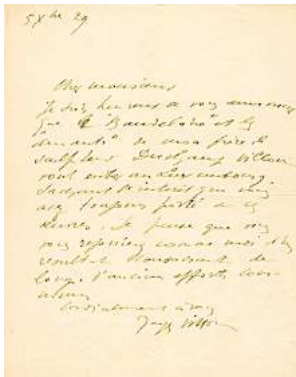 5 Xbre 29
Cher monsieur
Je suis heureux de vous annoncer
que le "Baudelaire" et les
"amants" de mon frère le
sculpteur Duchamp Villon
vont entrer au Luxembourg
Sachant l'intérêt que vous
avez toujours porté à ces
œuvres. Je pense que vous
vous réjouirez comme moi de ce
résultat de
long
Cordialement à vous
Jacques Villon